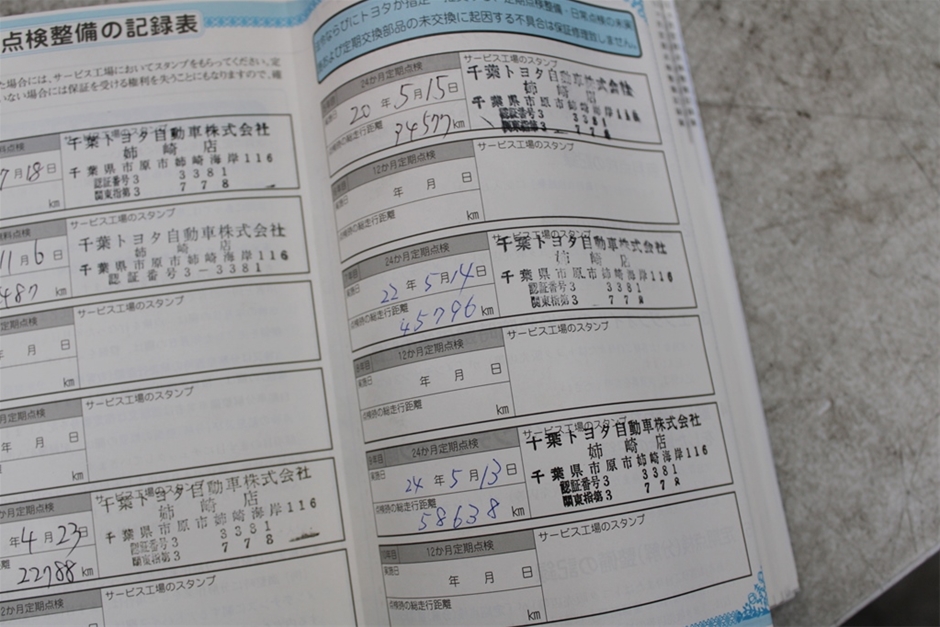 点検整備の記録表
た場合には、サービス工場においてスタンプをもらってください。定
いない場合には保証を受ける権利を失うことにもなりますので、確
サービス工場のスタンプ
千葉トヨタ自動車株式会社
姉崎店
千葉県市原市姉崎海岸116
認証番号3 3381
関東指第3 778
7月18日
km
無料点検
サービス工場のスタンプ
千葉トヨタ自動車株式会社
姉崎店
千葉県市原市姉崎海岸116
認証番号3-3381
11月6日
487 km
定期点検
サービス工場のスタンプ
年 月 日
km
月定期点検
サービス工場のスタンプ
年 月 日
km
か月定期点検
サービス工場のスタンプ
千葉トヨタ自動車株式会社
姉崎店
千葉県市原市姉崎海岸116
認証番号3 3381
関東指第3 778
年4月23日
22788 km
2か月定期点検
サービス工場のスタンプ
および定期交換部品の未交換に起因する不具合は保証修理致しません。
24か月定期点検
サービス工場のスタンプ
千葉トヨタ自動車株式会社
姉崎店
千葉県市原市姉崎海岸116
認証番号3 3381
関東指第3 778
実施日
20年5月15日
点検時の総走行距離
34577 km
12か月定期点検
サービス工場のスタンプ
実施日
年 月 日
点検時の総走行距離
km
24か月定期点検
サービス工場のスタンプ
千葉トヨタ自動車株式会社
姉崎店
千葉県市原市姉崎海岸116
認証番号3 3381
関東指第3 778
実施日
22年5月14日
点検時の総走行距離
45796 km
12か月定期点検
サービス工場のスタンプ
実施日
年 月 日
点検時の総走行距離
km
24か月定期点検
サービス工場のスタンプ
千葉トヨタ自動車株式会社
姉崎店
千葉県市原市姉崎海岸116
認証番号3 3381
関東指第3 778
実施日
24年5月13日
点検時の総走行距離
58638 km
12か月定期点検
サービス工場のスタンプ
実施日
年 月 日
点検時の総走行距離
km